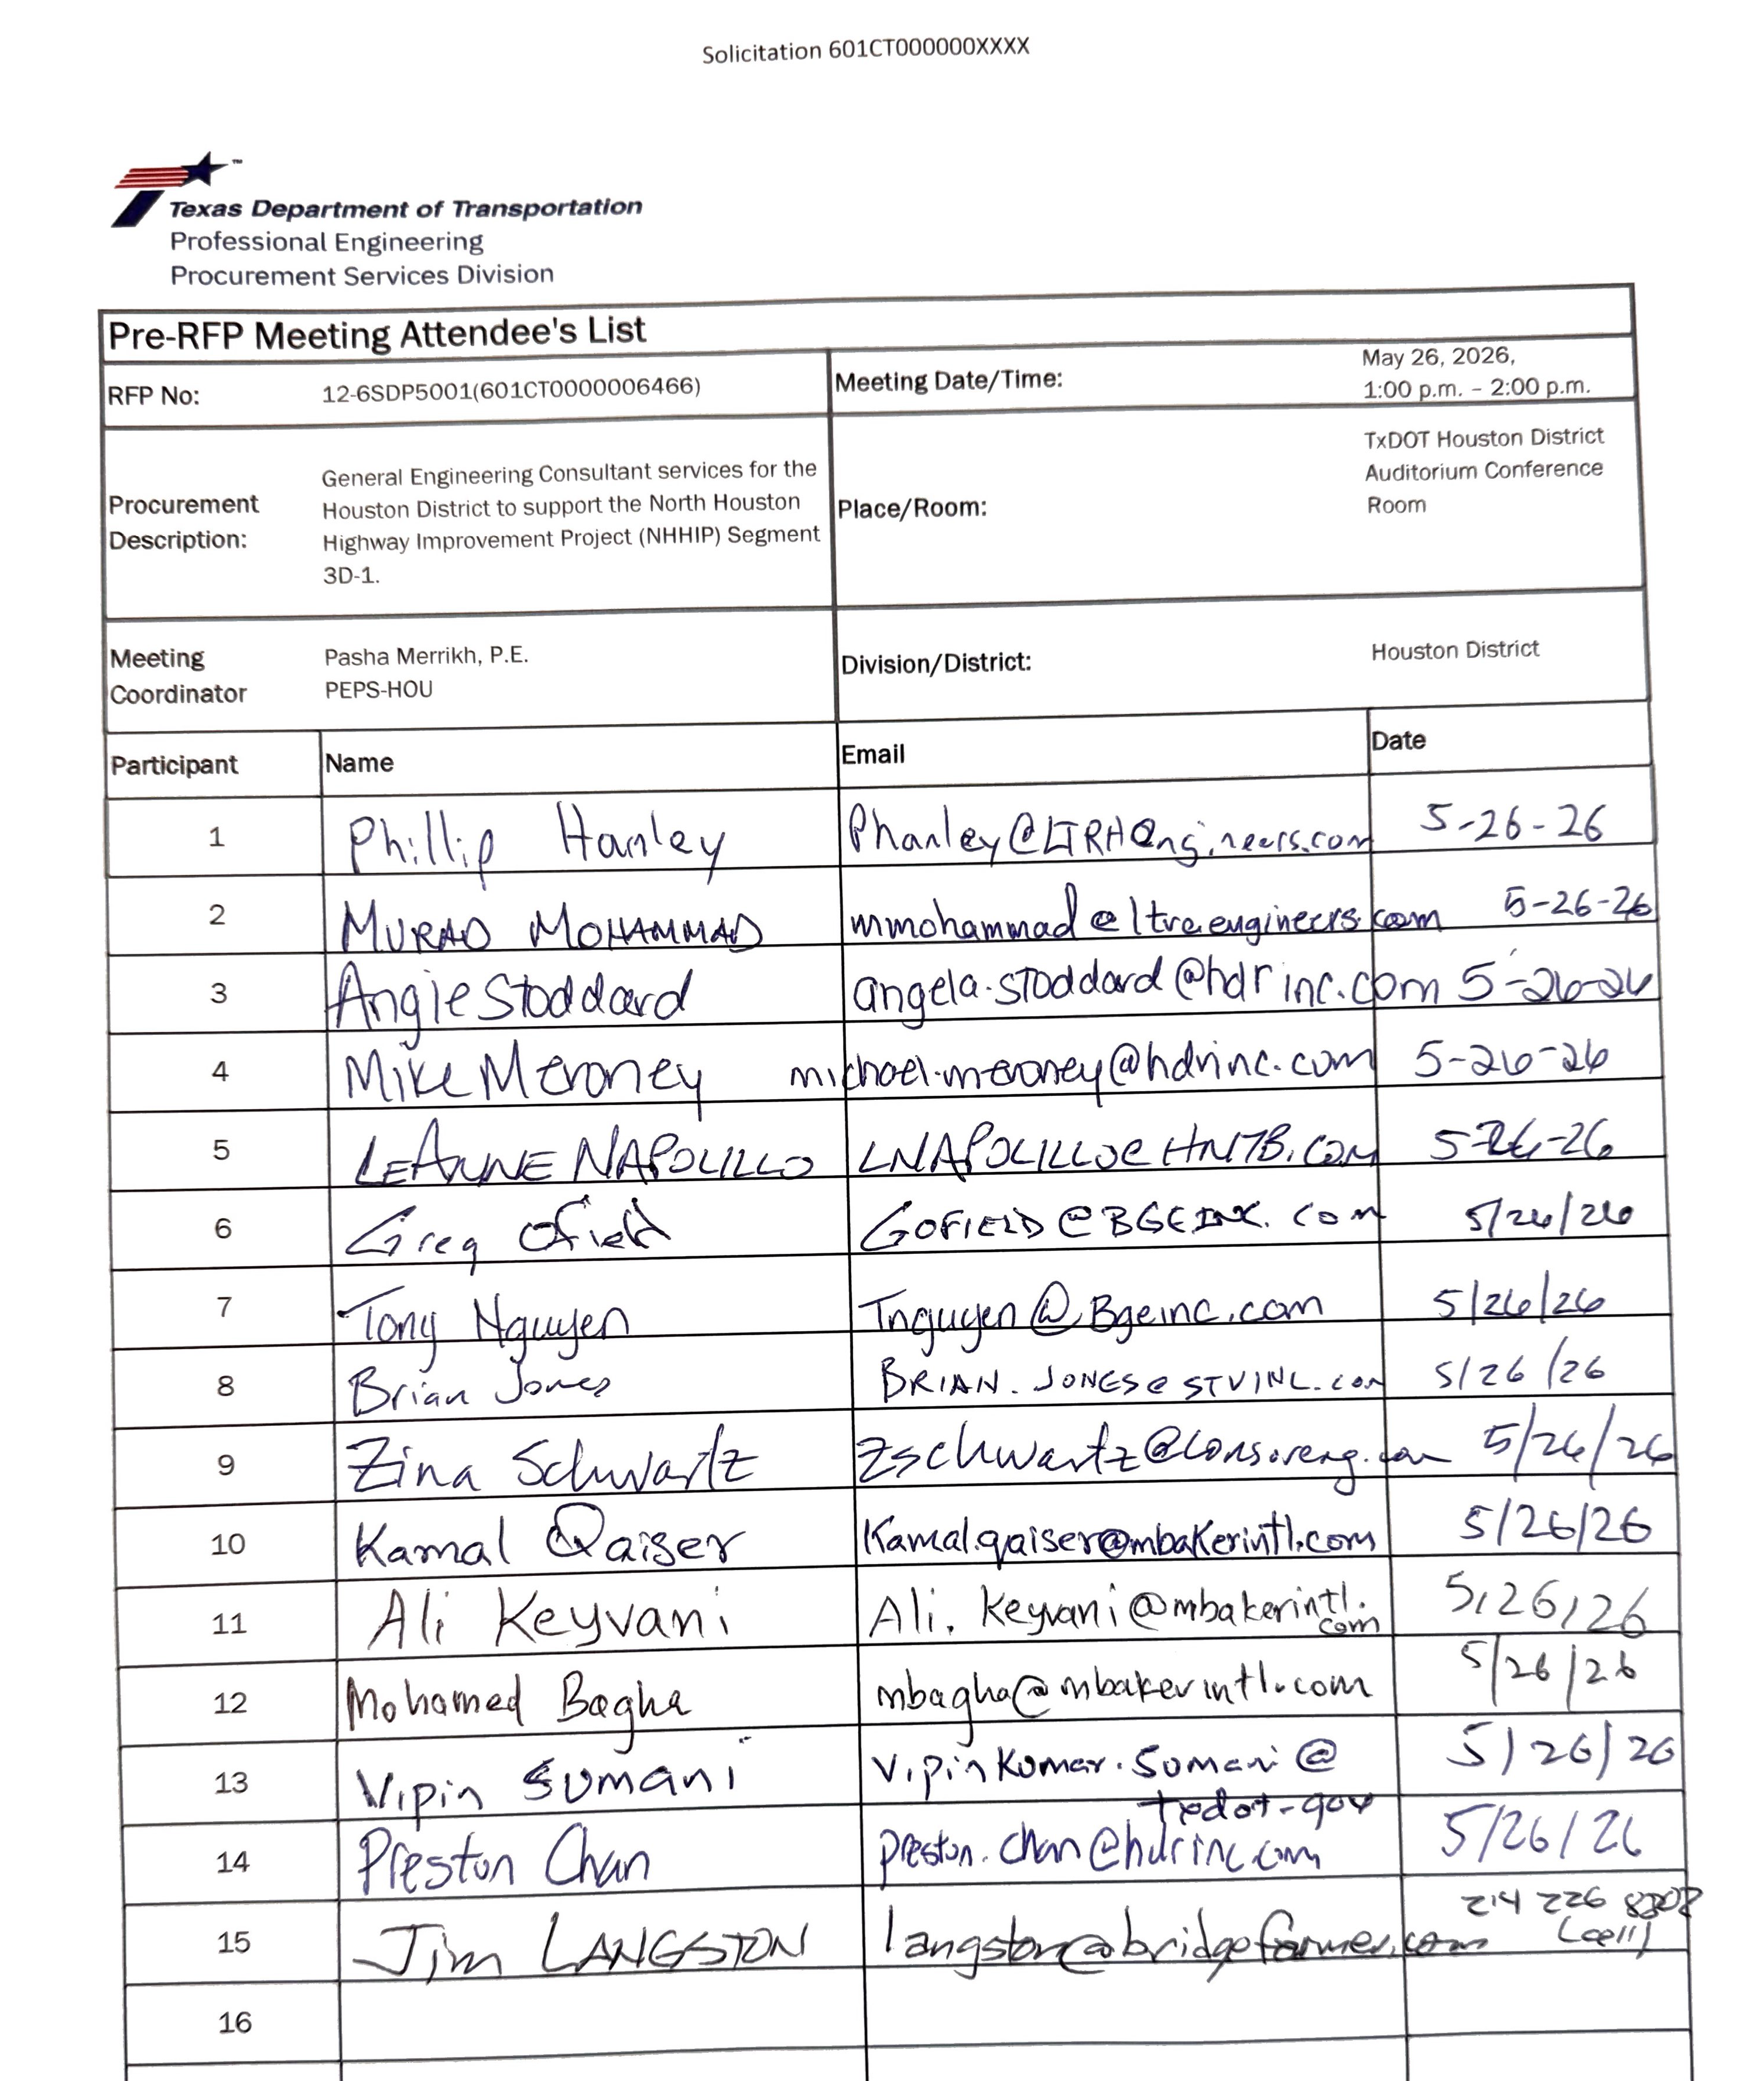 Solicitation 601CT000000XXXX
™
Texas Department of Transportation
Professional Engineering
Procurement Services Division
Pre-RFP Meeting Attendee's List
RFP No: 12-6SDP5001(601CT0000006466) Meeting Date/Time: May 26, 2026,
1:00 p.m. – 2:00 p.m.
Procurement Description: General Engineering Consultant services for the
Houston District to support the North Houston
Highway Improvement Project (NHHIP) Segment
3D-1.
Place/Room: TxDOT Houston District
Auditorium Conference
Room
Meeting Coordinator Pasha Merrikh, P.E.
PEPS-HOU
Division/District: Houston District
Participant Name Email Date
1 Phillip Hanley Phanley@LTRAEngineers.com 5-26-26
2 MURAD MOHAMMAD mmohammad@ltraengineers.com 5-26-26
3 Angie Stoddard angela.stoddard@hdrinc.com 5-26-26
4 Mike Meroney michael.meroney@hdrinc.com 5-26-26
5 LEANNE NAPOLILLO LNAPOLILLO@HNTB.COM 5-26-26
6 Greg Ofield GOFIELD@BGEINC.COM 5/26/26
7 Tony Nguyen Tnguyen@Bgeinc.com 5/26/26
8 Brian Jones BRIAN.JONES@STVINC.com 5/26/26
9 Zina Schwartz Zschwartz@consoreng.com 5/26/26
10 Kamal Qaiser Kamal.qaiser@mbakerintl.com 5/26/26
11 Ali Keyvani Ali.Keyvani@mbakerintl.
com 5/26/26
12 Mohamed Bagha mbagha@mbakerintl.com 5/26/26
13 Vipin Somani Vipinkumar.Somani@
txdot.gov 5/26/26
14 Preston Chan preston.chan@hdrinc.com 5/26/26
15 Jim LANGSTON langston@bridgefarmer.com 214 226 8308
(cell)
16